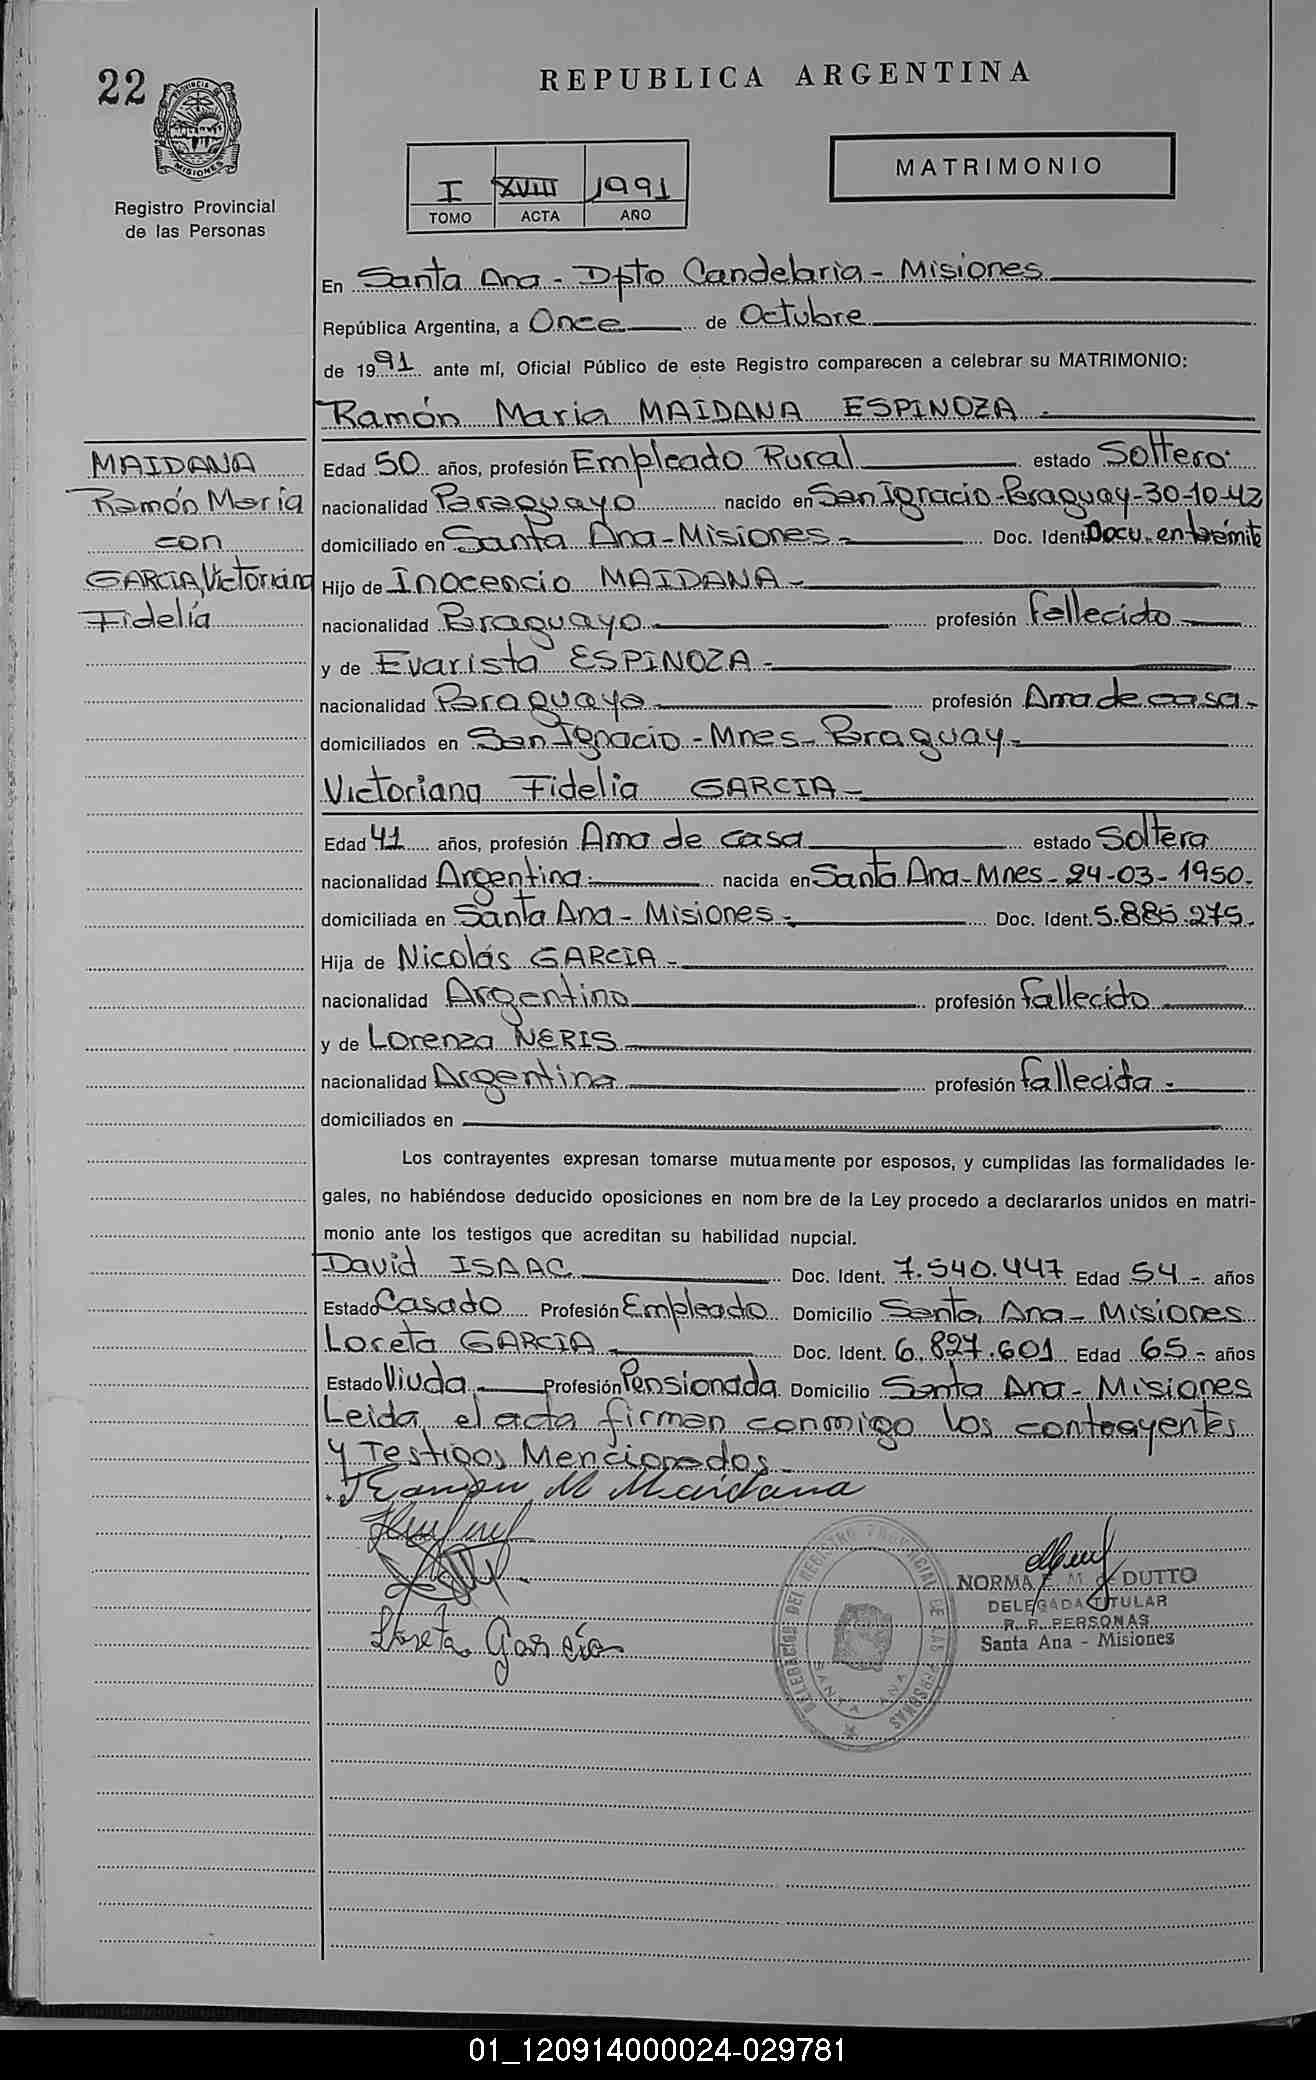 22
REPUBLICA ARGENTINA
PROVINCIA DE
MISIONES
Registro Provincial
de las Personas
I XVIII 1991
TOMO ACTA AÑO
MATRIMONIO
En Santa Ana - Dpto Candelaria - Misiones
República Argentina, a Once de Octubre
de 1991 ante mí, Oficial Público de este Registro comparecen a celebrar su MATRIMONIO:
Ramón Maria MAIDANA ESPINOZA -
MAIDANA
Ramón Maria
con
GARCIA, Victoriana
Fidelia
Edad 50 años, profesión Empleado Rural estado Soltero.
nacionalidad Paraguayo nacido en San Ignacio - Paraguay - 30-10-42
domiciliado en Santa Ana - Misiones - Doc. Ident. Docu. en trámite
Hijo de Inocencio MAIDANA -
nacionalidad Paraguayo profesión fallecido
y de Evarista ESPINOZA -
nacionalidad Paraguaya profesión Ama de casa -
domiciliados en San Ignacio - Mnes - Paraguay -
Victoriana Fidelia GARCIA -
Edad 41 años, profesión Ama de casa estado Soltera
nacionalidad Argentina nacida en Santa Ana - Mnes - 24-03-1950.
domiciliada en Santa Ana - Misiones - Doc. Ident. 5.885.275.
Hija de Nicolás GARCIA -
nacionalidad Argentino profesión fallecido
y de Lorenza NERIS
nacionalidad Argentina profesión fallecida -
domiciliados en
Los contrayentes expresan tomarse mutuamente por esposos, y cumplidas las formalidades le-
gales, no habiéndose deducido oposiciones en nom bre de la Ley procedo a declararlos unidos en matri-
monio ante los testigos que acreditan su habilidad nupcial.
David ISAAC Doc. Ident. 7.540.447 Edad 54 - años
Estado Casado Profesión Empleado Domicilio Santa Ana - Misiones
Loreta GARCIA Doc. Ident. 6.827.601 Edad 65 - años
Estado Viuda Profesión Pensionada Domicilio Santa Ana - Misiones
Leida el acta firman conmigo los contrayentes
y Testigos Mencionados -
Ramon M Maidana
Loreta Garcia
DELEGACION DEL REGISTRO PROVINCIAL DE LAS PERSONAS
SANTA ANA
NORMA M. de DUTTO
DELEGADA TITULAR
R. P. PERSONAS
Santa Ana - Misiones
01_120914000024-029781